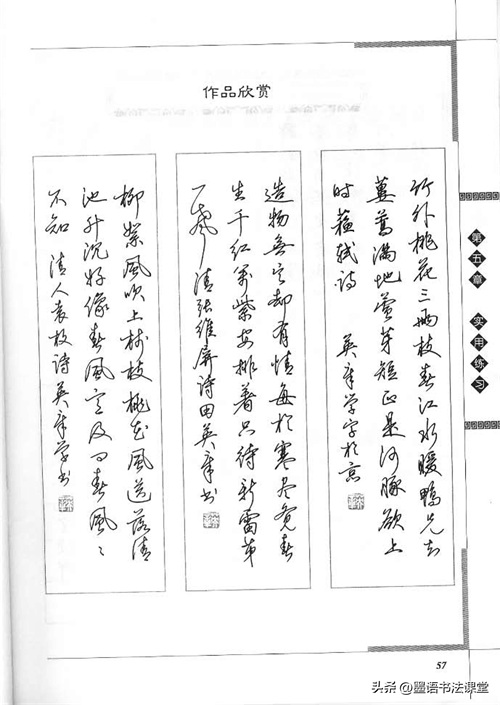 作品欣赏
竹外桃花三兩枝春江水暖鴨先知
蔞蒿滿地蘆芽短正是河豚欲上
时 蘇軾詩 英章学字於京
造物無言却有情每於寒尽覺春
生千红萬紫安排著只待新雷第
一聲 清張維屏詩田英章书
柳絮風吹上樹枝桃花風送落清
池升沉好像春風意及问春風〻
不知 清人袁枚詩英章学书
第五章 实用练习
57
头条 @墨语书法课堂